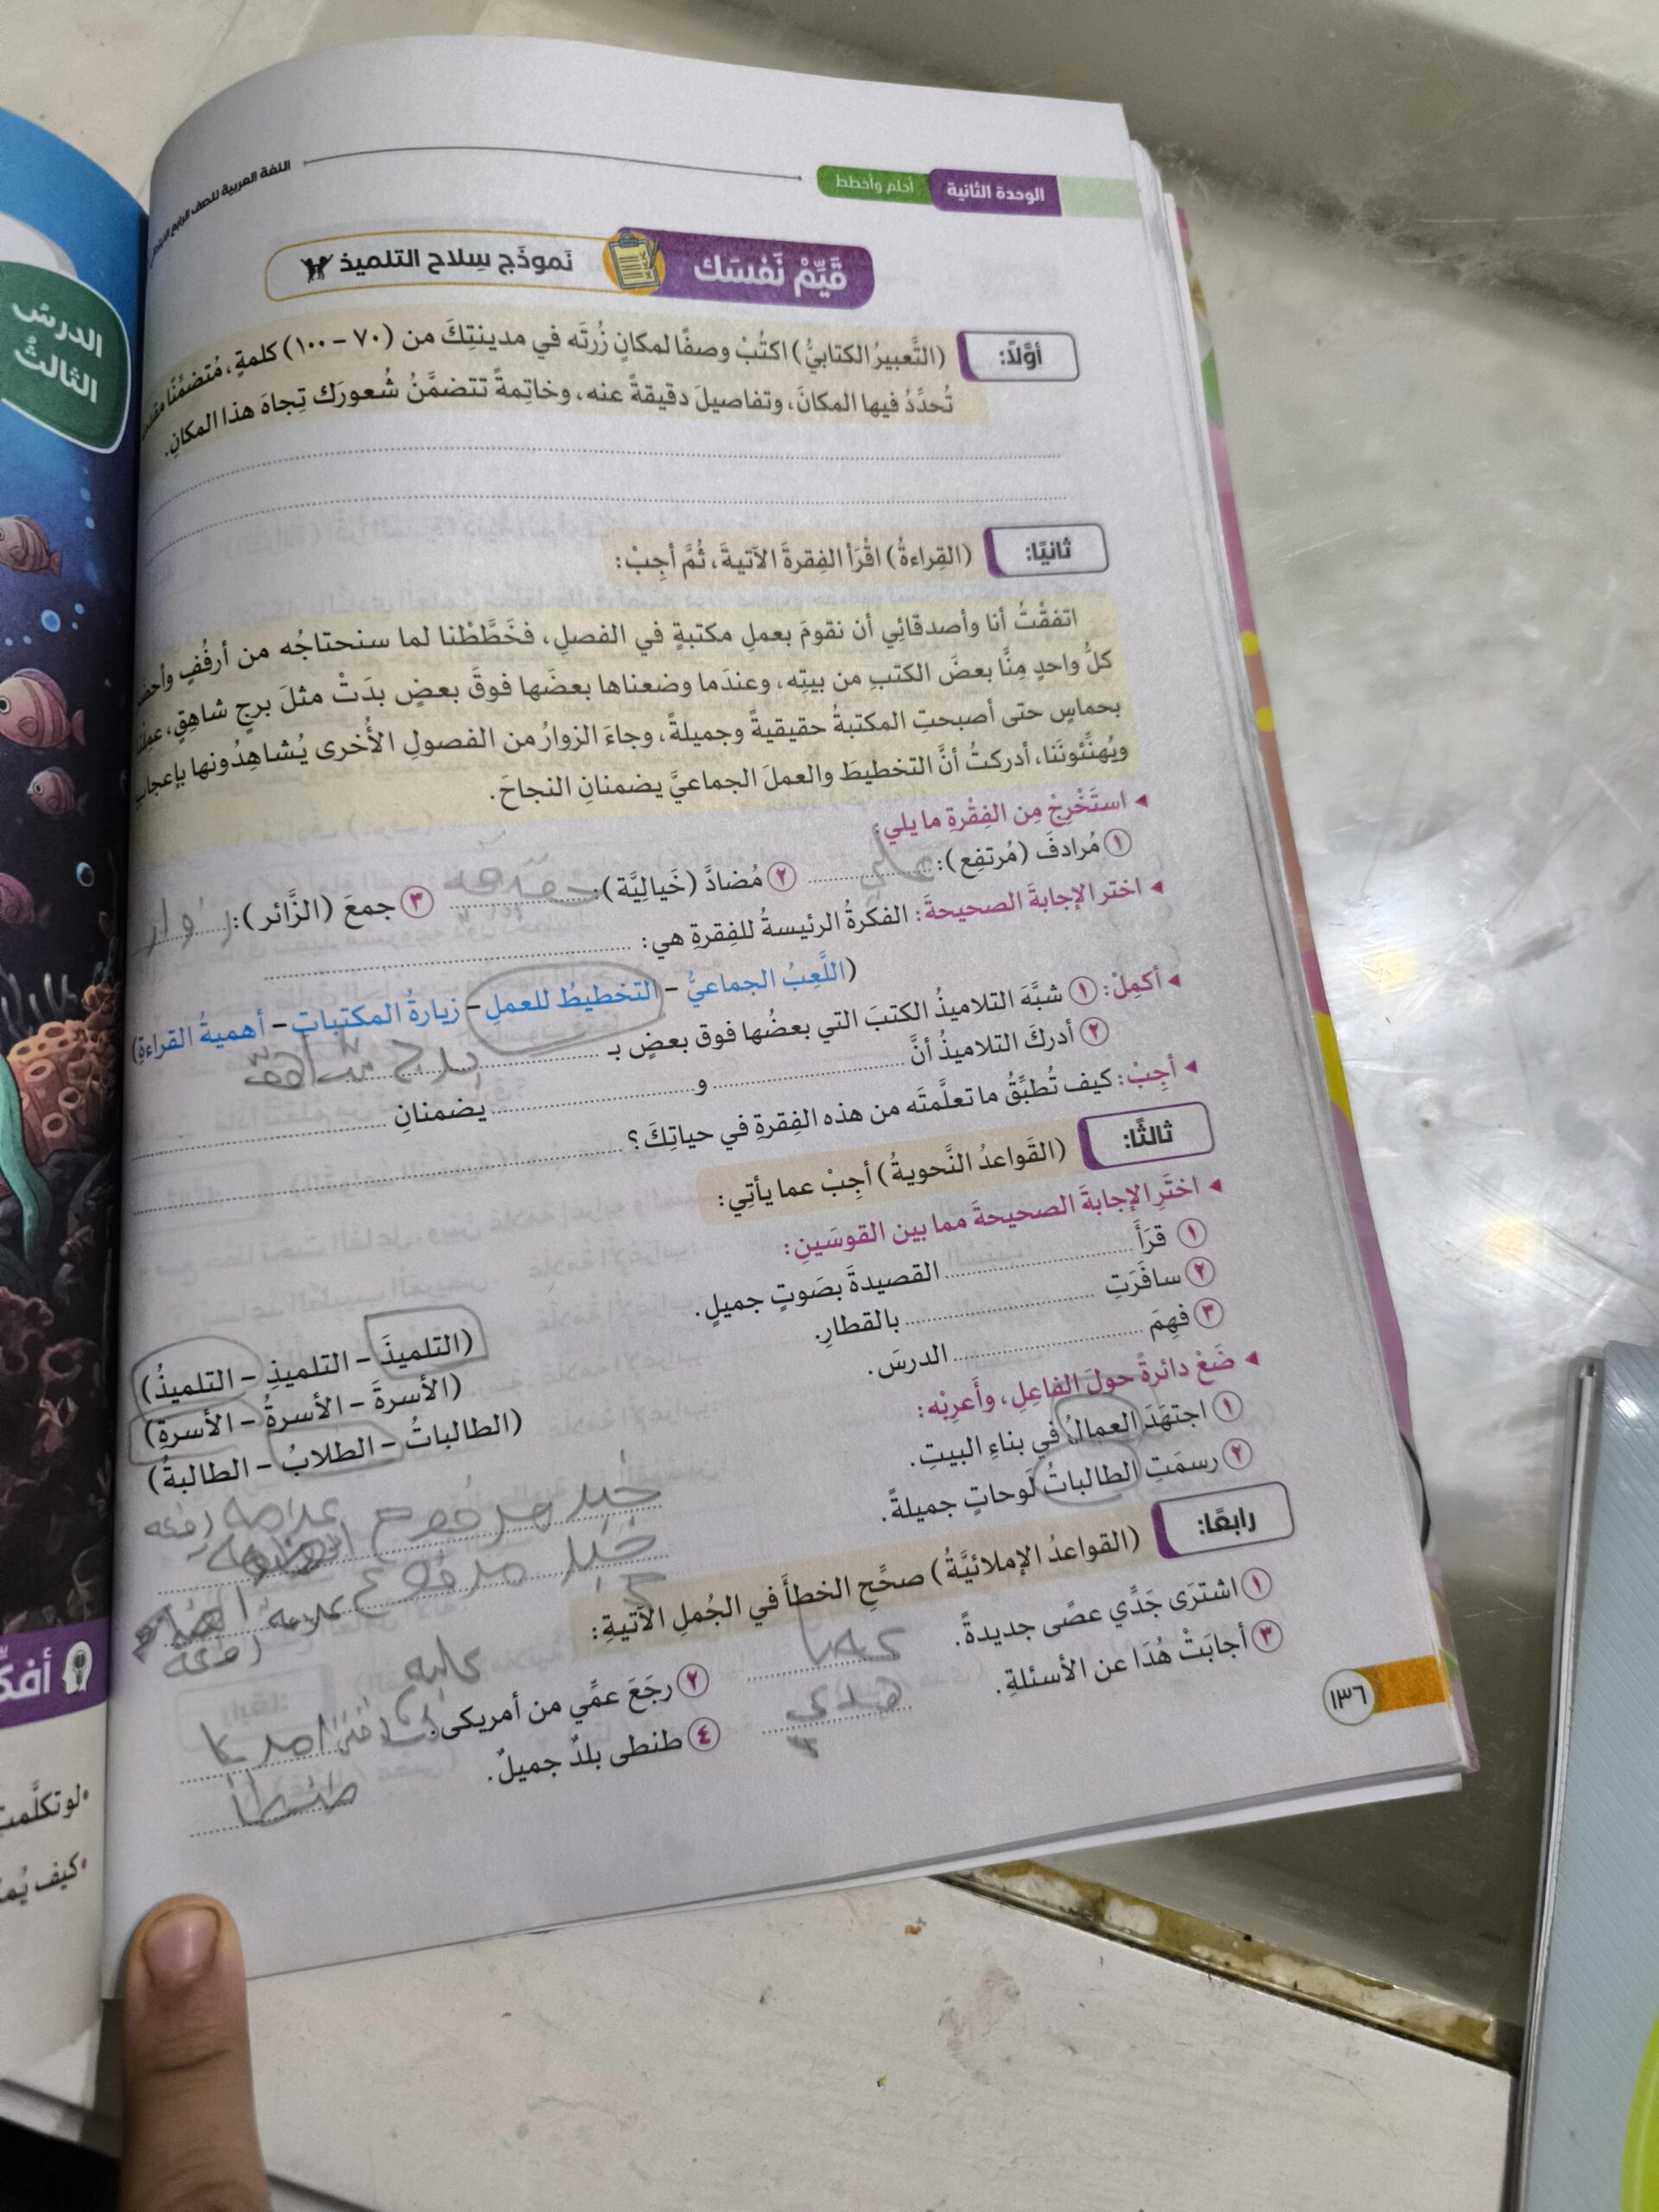 اللغة العربية للصف الرابع
الوحدة الثانية أحلم وأخطط
قَيِّمْ نَفْسَك نَموذَج سِلاح التلميذ
أوَّلًا: (التَّعبيرُ الكتابيُّ) اكتُبْ وصفًا لمكانٍ زُرتَه في مدينتِكَ من (٧٠ – ١٠٠) كلمةٍ، مُتضمِّنًا
تُحدِّدُ فيها المكانَ، وتفاصيلَ دقيقةً عنه، وخاتِمةً تتضمَّنُ شُعورَك تِجاهَ هذا المكانِ.
ثانيًا: (القِراءةُ) اقْرَأ الفِقرةَ الآتيةَ، ثُمَّ أجِبْ:
اتفقْتُ أنا وأصدقائِي أن نقومَ بعملِ مكتبةٍ في الفصلِ، فخَطَّطْنا لما سنحتاجُه من أرفُفٍ
كلُّ واحدٍ مِنَّا بعضَ الكتبِ من بيتِه، وعندَما وضعناها بعضَها فوقَ بعضٍ بدَتْ مثلَ برجٍ شاهِقٍ،
بحماسٍ حتى أصبحتِ المكتبةُ حقيقيةً وجميلةً، وجاءَ الزوارُ من الفصولِ الأُخرى يُشاهِدُونها بإعجاب
ويُهنِّئُونَنا، أدركتُ أنَّ التخطيطَ والعملَ الجماعيَّ يضمنانِ النجاحَ.
◂ استَخْرِجْ مِن الفِقْرةِ ما يلي:
١ مُرادفَ (مُرتفِع): ٢ مُضادَّ (خَيالِيَّة): ٣ جمعَ (الزَّائر): زوار
◂ اختر الإجابةَ الصحيحةَ: الفكرةُ الرئيسةُ للفِقرةِ هي:
(اللَّعِبُ الجماعيُّ – التخطيطُ للعملِ – زيارةُ المكتباتِ – أهميةُ القراءةِ)
◂ أكمِلْ: ١ شبَّهَ التلاميذُ الكتبَ التي بعضُها فوق بعضٍ بـ برج شاهق
٢ أدركَ التلاميذُ أنَّ و يضمنانِ
◂ أجِبْ: كيف تُطبِّقُ ما تعلَّمتَه من هذه الفِقرةِ في حياتِكَ؟
ثالثًا: (القَواعدُ النَّحوية) أجِبْ عما يأتِي:
◂ اختَرِ الإجابةَ الصحيحةَ مما بين القوسَينِ:
١ قرَأَ القصيدةَ بصَوتٍ جميلٍ. (التلميذَ – التلميذِ – التلميذُ)
٢ سافَرَتِ بالقطارِ. (الأسرةَ – الأسرةُ – الأسرةِ)
٣ فهِمَ الدرسَ. (الطالباتُ – الطلابُ – الطالبةُ)
◂ ضَعْ دائرةً حولَ الفاعِلِ، وأَعرِبْه:
١ اجتهَدَ العمالُ في بناءِ البيتِ. خبر مرفوع علامة رفعه
٢ رسمَتِ الطالباتُ لَوحاتٍ جميلةً. خبر مرفوع علامة رفعه
رابعًا: (القواعدُ الإملائيَّةُ) صحِّح الخطأَ في الجُملِ الآتيةِ:
١ اشترَى جَدِّي عصًى جديدةً. عصا ٢ رجَعَ عمِّي من أمريكى. امريكا
٣ أجابَتْ هُدَا عن الأسئلةِ. هدى ٤ طنطى بلدٌ جميلٌ. طنطا
١٣٦
الدرسُ
الثالثُ
لو تكلَّمت